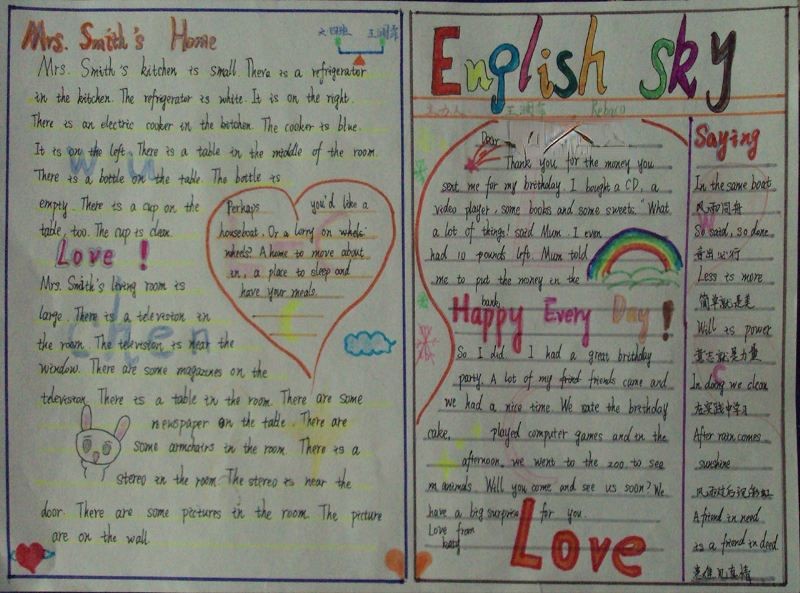 Mrs. Smith's Home
王
Mrs. Smith's kitchen is small. There is a refrigerator
in the kitchen. The refrigerator is white. It is on the right.
There is an electric cooker in the kitchen. The cooker is blue.
It is on the left. There is a table in the middle of the room.
There is a bottle on the table. The bottle is
empty. There is a cup on the
table, too. The cup is clean.
Love !
Mrs. Smith's living room is
large. There is a television in
the room. The television is near the
window. There are some magazines on the
television. There is a table in the room. There are some
newspaper on the table. There are
some armchairs in the room. There is a
stereo in the room. The stereo is near the
door. There are some pictures in the room. The picture
are on the wall.
Perhaps you'd like a
houseboat. Or a lorry on wheels
wheels? A home to move about
in, a place to sleep and
have your meals.
Chen
English sky
主办人: 王 Rebaco
Dear
Thank you for the money you
sent me for my birthday. I bought a CD, a
video player, some books and some sweets. "What
a lot of things! said Mum. I even
had 10 pounds left. Mum told
me to put the money in the
bank.
Happy Every Day !
So I did. I had a great birthday
party. A lot of my frind friends came and
we had a nice time. We sate the birthday
cake, played computer games and in the
afternoon, we went to the zoo to see
m animals. Will you come and see us soon? We
have a big surprise for you.
Love from
Love
Saying
In the same boat
风雨同舟
So said, so done
言出必行
Less is more
简单就是美
Will is power
意志就是力量
In doing we clean
在实践中学习
After rain comes
sunshine
风雨过后
A friend in need
is a friend in deed
患难见真情